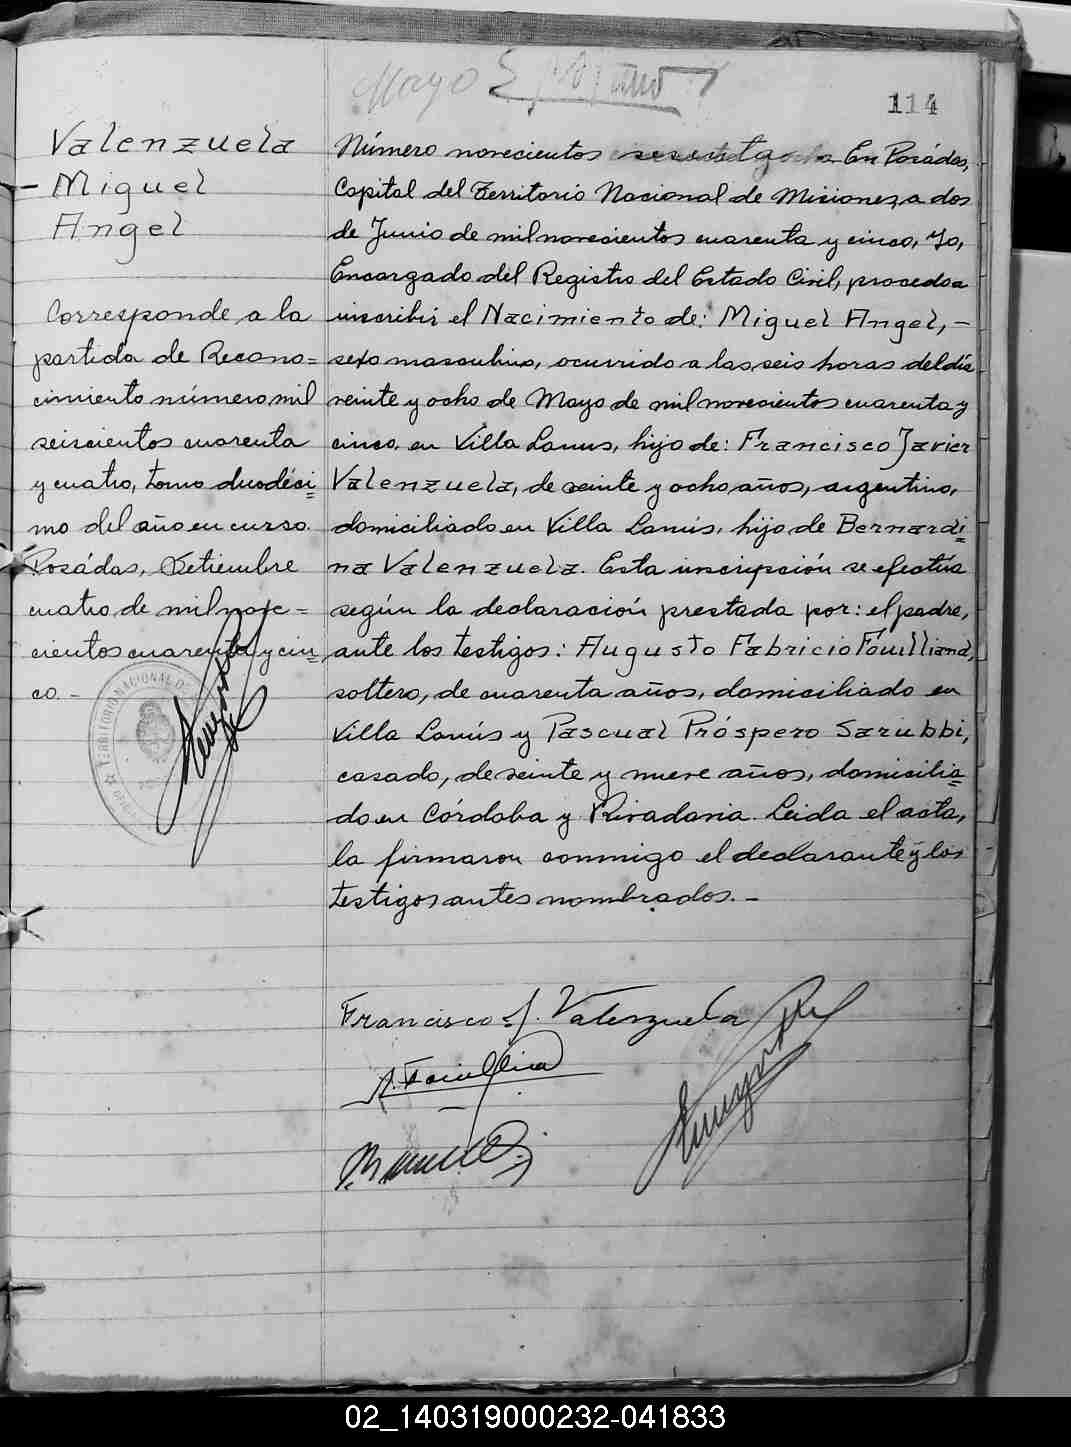 Mayo
114
Valenzuela
- Miguel
Angel
Corresponde a la
partida de Recono=
cimiento número mil
seiscientos cuarenta
y cuatro, tomo duodéci=
mo del año en curso.
Posádas, Setiembre
cuatro de mil nove=
cientos cuarenta y cin=
co. -
TERRITORIO NACIONAL DE
Número novecientos En Posádas,
Capital del Territorio Nacional de Misiones, a dos
de Junio de mil novecientos cuarenta y cinco, Yo,
Encargado del Registro del Estado Civil, procedo a
inscribir el Nacimiento de: Miguel Angel, -
sexo masculino, ocurrido a las seis horas del día
veinte y ocho de Mayo de mil novecientos cuarenta y
cinco, en Villa Lanus, hijo de: Francisco Javier
Valenzuela, de veinte y ocho años, argentino,
domiciliado en Villa Lanús, hijo de Bernardi=
na Valenzuela. Esta inscripción se efectúa
según la declaración prestada por: el padre,
ante los testigos: Augusto Fabricio
soltero, de cuarenta años, domiciliado en
Villa Lanús y Pascual Próspero Sarubbi,
casado, de veinte y nueve años, domicilia=
do en Córdoba y Rivadavia. Leida el acta,
la firmaron conmigo el declarante y los
testigos antes nombrados. -
Francisco J. Valenzuela
02_140319000232-041833